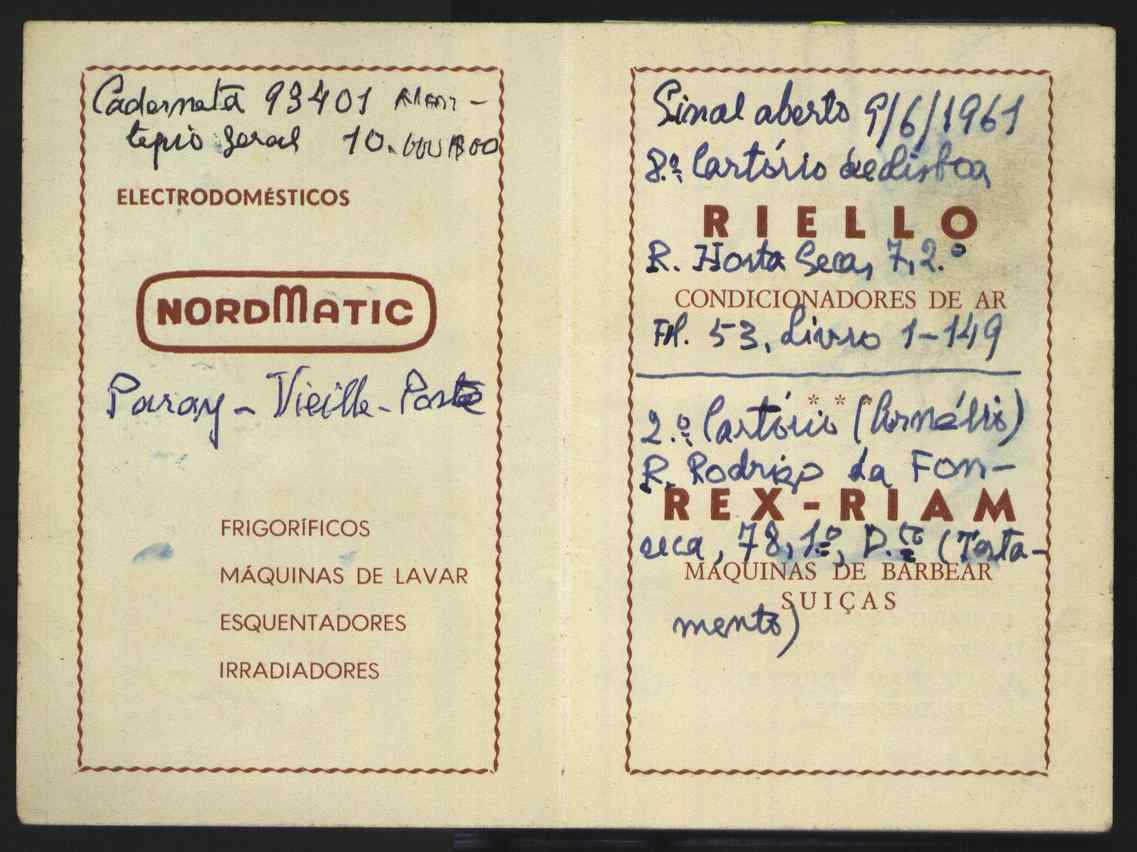 Caderneta 93401 Mon-
tepio Geral 10.000$00
ELECTRODOMÉSTICOS
NORDMATIC
Paray - Vieille - Poste
FRIGORÍFICOS
MÁQUINAS DE LAVAR
ESQUENTADORES
IRRADIADORES
Sinal aberto 9/6/1961
8.º Cartório de Lisboa
RIELLO
R. Horta Seca, 7, 2.º
CONDICIONADORES DE AR
Fl. 53, Livro 1-149
* * *
2.º Cartório (Cornélio)
R. Rodrigo da Fon-
REX-RIAM
seca, 78, 1.º, D.to (Testa-
MÁQUINAS DE BARBEAR
SUIÇAS
mento)